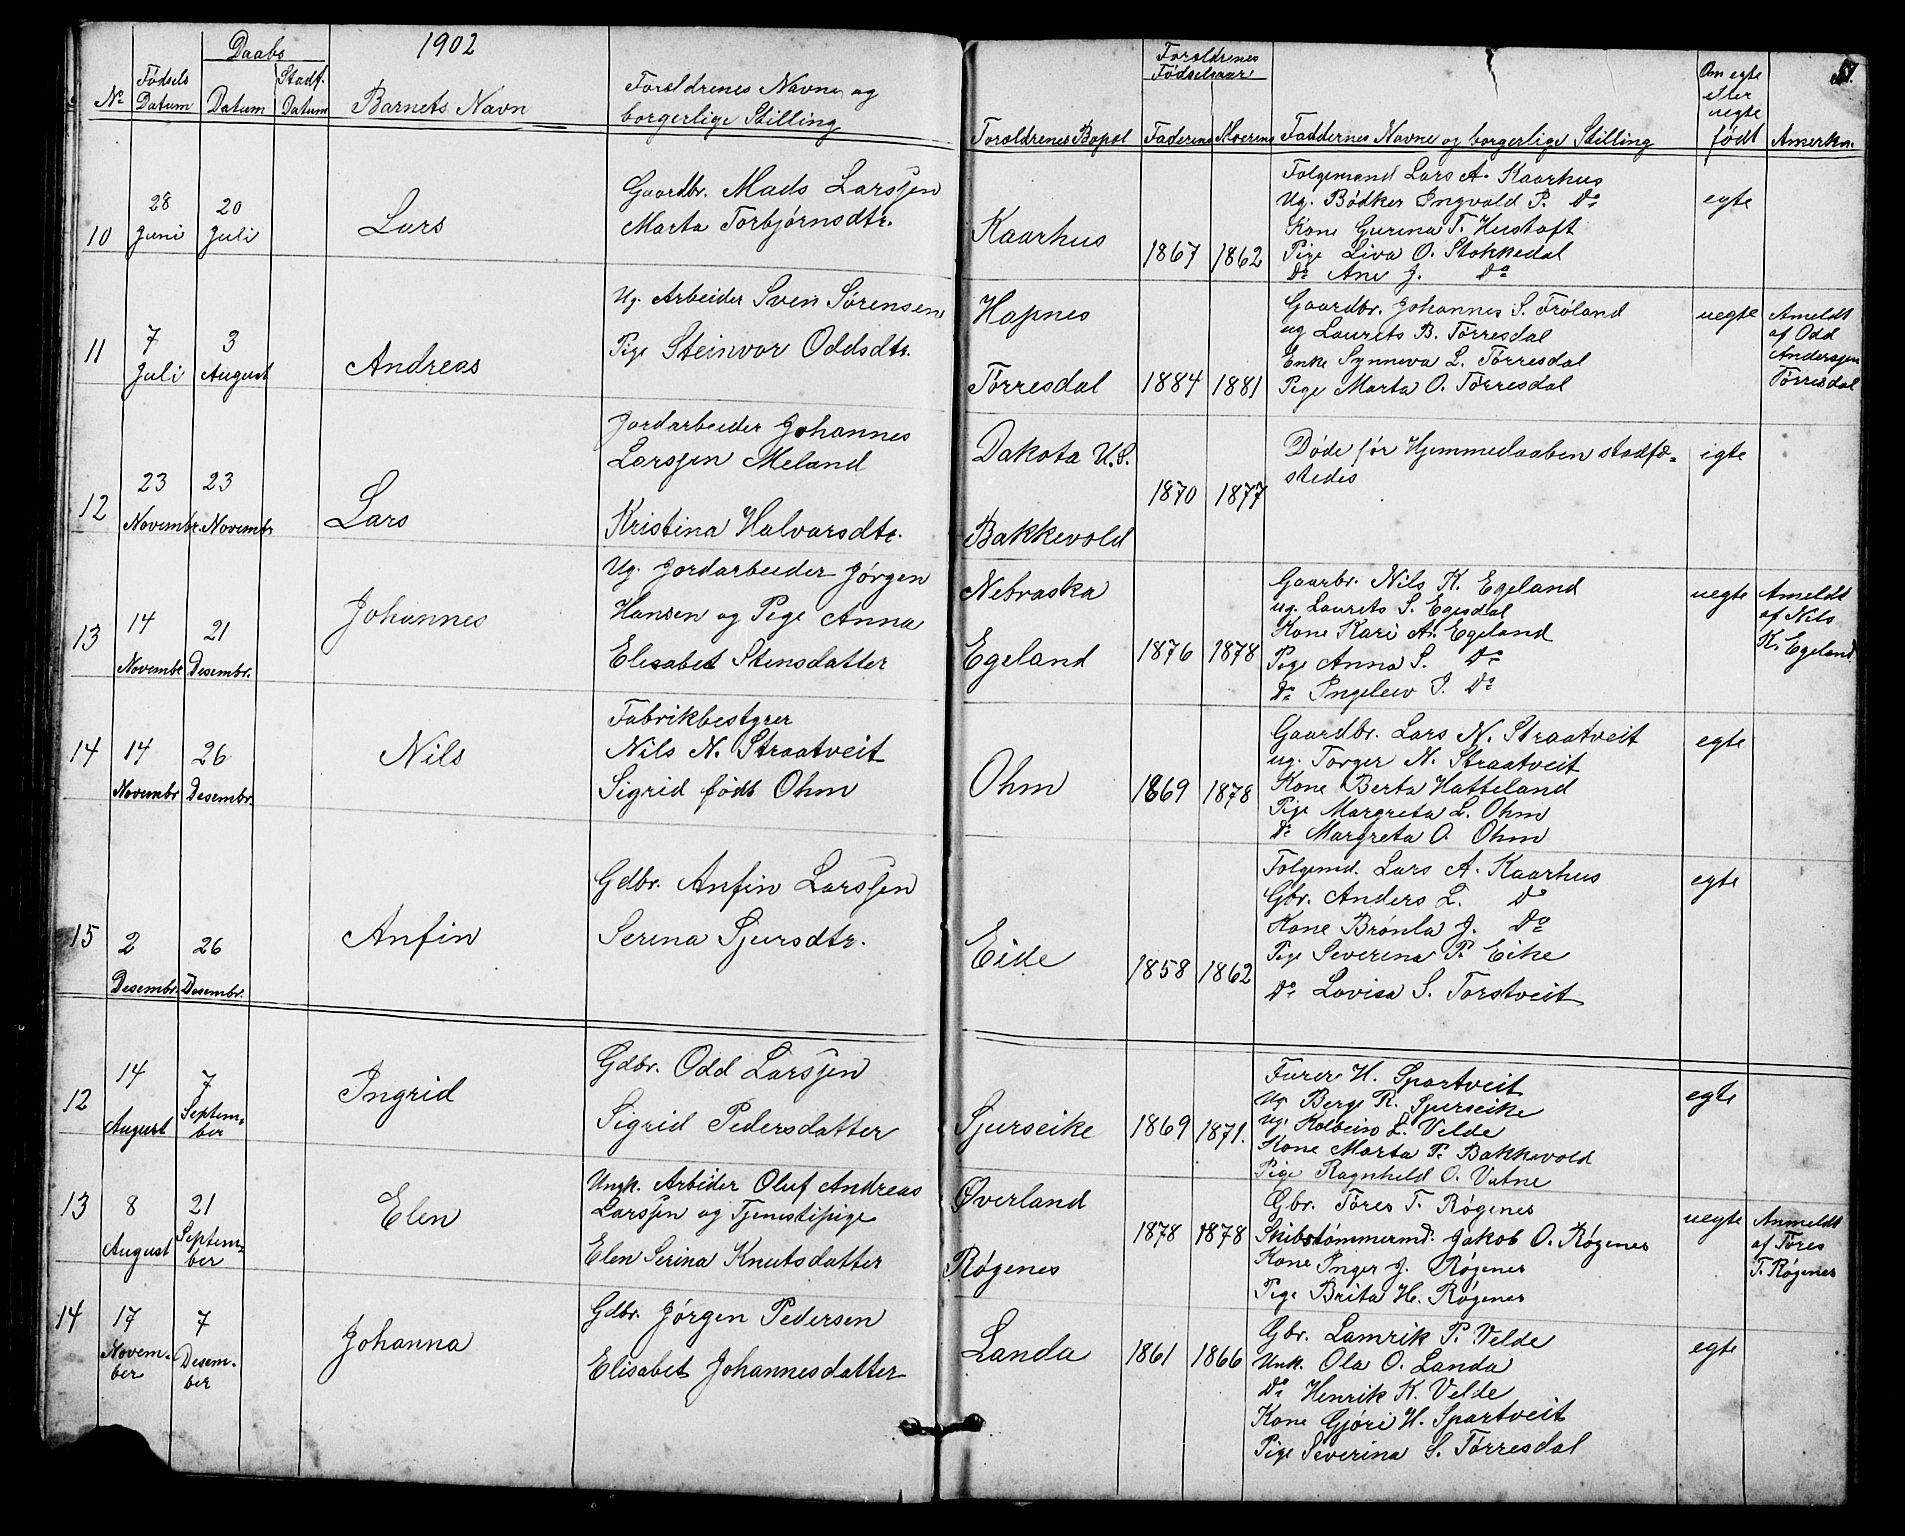 1902
Daabs
Nº Fødsels Datum Datum Stadf. Datum Barnets Navn Forældrenes Navne og borgerlige Stilling
Forældrenes Fødselsaar
Forældrenes Bopæl Faderens Moerens Faddernes Navne og borgerlige Stilling Om egte eller uegte født Anmerkn.
10 28 Juni 20 Juli Lars
Gaardbr. Mads Larssen
Marta Torbjørnsdtr.
Kaarhus 1867 1862
Følgemand Lars A. Kaarhus
Ug. Bødker Ingvald P. Do
Kone Gurina T. Hustoft
Pige Liva O. Stokkedal
Do Ane J. Do
egte
11 7 Juli 3 August Andreas
Ug. Arbeider Sven Sørensen
Pige Steinvor Oddsdtr.
Hapnes
Tørresdal 1884 1881
Gaardbr. Johannes S. Frøland
ug Laurits B. Tørresdal
Enke Synneva L. Tørresdal
Pige Marta O. Tørresdal
uegte
Ameldt
af Odd
Anderssen
Tørresdal
12 23 Novembr. 23 Novembr. Lars
Jordarbeider Johannes
Larssen Meland
Kristina Halvarsdtr.
Dakota U.S.
Bakkevold 1870 1877
Døde før Hjemmedaaben stadfæ-
stedes
egte
13 14 Novembr 21 Desembr. Johannes
Ug. Jordarbeider Jørgen
Hansen og Pige Anna
Elisabet Stensdatter
Nebraska
Egeland 1876 1878
Gaarbr. Nils K. Egeland
ug. Laurits S. Egesdal
Kone Kari A. Egeland
Pige Anna S. Do
Do Ingelew I. Do
uegte
Ameldt
af Nils
K. Egeland
14 14 Novembr 26 Desembr. Nils
Fabrikbestyrer
Nils N. Straatveit
Sigrid født Ohm
Ohm 1869 1878
Gaardbr. Lars N. Straatveit
ug. Torger N. Straatveit
Kone Berta Hatteland
Pige Margreta L. Ohm
Do Margreta O. Ohm
egte
15 2 Desembr. 26 Desembr. Anfin
Gdbr. Anfin Larssen
Serina Sjursdtr.
Eide 1858 1862
Følgmd. Lars A. Kaarhus
Gbr. Anders L. Do
Kone Brønla J. Do
Pige Severina P. Eike
Do Lovisa S. Torstveit
egte
12 14 August 7 Septem-
ber Ingrid
Gdbr. Odd Larssen
Sigrid Pedersdatter
Sjurseike 1869 1871.
Furer H. Spartveit
Ug. Berge R. Sjurseike
ug. Kolbein L. Velde
Kone Marta P. Bakkevold
Pige Ragnheld O. Vatne
egte
13 8 August 21 Septem-
ber Elen
Ungk. Arbider Oluf Andreas
Larssen og Tjenestipige
Elen Serina Knutsdatter
Øverland
Røgenes 1878 1878
Gbr. Tøres T. Røgenes
Skibstømmermd. Jakob O. Røgenes
Kone Inger J. Røgenes
Pige Brita H. Røgenes
uegte
Anmeldt
af Tøres
T. Røgenes
14 17 Novem-
ber 7 Desem-
ber Johanna
Gdbr. Jørgen Pedersen
Elisabet Johannesdatter
Landa 1861 1866
Gbr. Lamrik P. Velde
Unk. Ola O. Landa
Do Henrik K. Velde
Kone Gjøri H. Spartveit
Pige Severina S. Tørresdal
egte